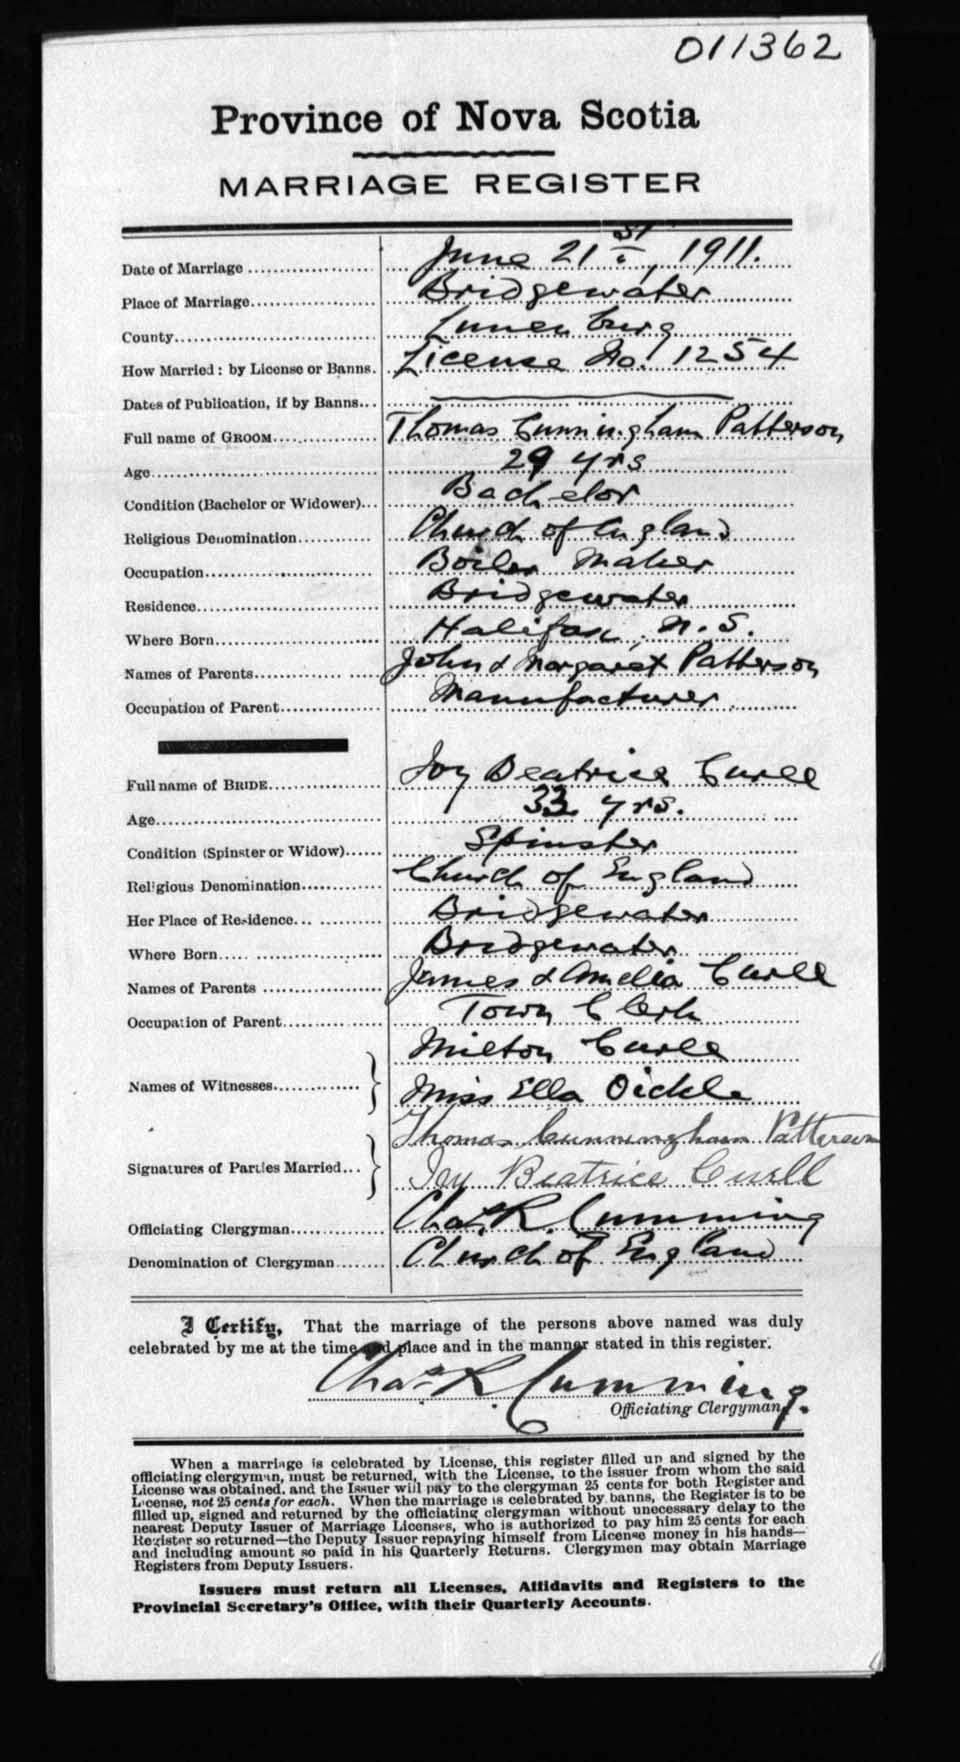 011362
Province of Nova Scotia
MARRIAGE REGISTER
Date of Marriage June 21st, 1911.
Place of Marriage Bridgewater
County Lunenburg
How Married: by License or Banns. License No. 1254
Dates of Publication, if by Banns
Full name of GROOM Thomas Cunningham Patterson
Age 29 yrs
Condition (Bachelor or Widower) Bachelor
Religious Denomination Church of England
Occupation Boiler Maker
Residence Bridgewater
Where Born Halifax, N.S.
Names of Parents John & Margaret Patterson
Occupation of Parent Manufacturer
Full name of BRIDE Joy Beatrice Curll
Age 33 yrs.
Condition (Spinster or Widow) Spinster
Religious Denomination Church of England
Her Place of Residence Bridgewater
Where Born Bridgewater
Names of Parents James & Amelia Curll
Occupation of Parent Town Clerk
Names of Witnesses Milton Curll
Miss Ella Oickle
Signatures of Parties Married Thomas Cunningham Patterson
Joy Beatrice Curll
Officiating Clergyman Chas. R. Cumming
Denomination of Clergyman Church of England
I Certify, That the marriage of the persons above named was duly
celebrated by me at the time and place and in the manner stated in this register.
Chas. R. Cumming.
Officiating Clergyman
When a marriage is celebrated by License, this register filled up and signed by the
officiating clergyman, must be returned, with the License, to the issuer from whom the said
License was obtained, and the Issuer will pay to the clergyman 25 cents for both Register and
License, not 25 cents for each. When the marriage is celebrated by banns, the Register is to be
filled up, signed and returned by the officiating clergyman without unecessary delay to the
nearest Deputy Issuer of Marriage Licenses, who is authorized to pay him 25 cents for each
Register so returned—the Deputy Issuer repaying himself from License money in his hands—
and including amount so paid in his Quarterly Returns. Clergymen may obtain Marriage
Registers from Deputy Issuers.
Issuers must return all Licenses, Affidavits and Registers to the
Provincial Secretary's Office, with their Quarterly Accounts.